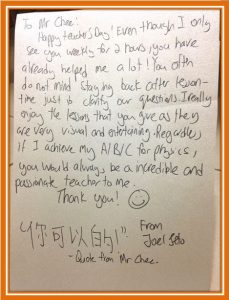 To Mr Chee:
Happy teacher's Day! Even though I only
see you weekly for 2 hours, you have
already helped me a lot! You often
do not mind staying back after lesson-
time just to clarify our questions. I really
enjoy the lessons that you give as they
are very visual and entertaining. Regardless
if I achieve my A/B/C for physics,
you would always be a incredible and
passionate teacher to me.
Thank you!
"你可以的"
- Quote from Mr Chee.
From
Joel